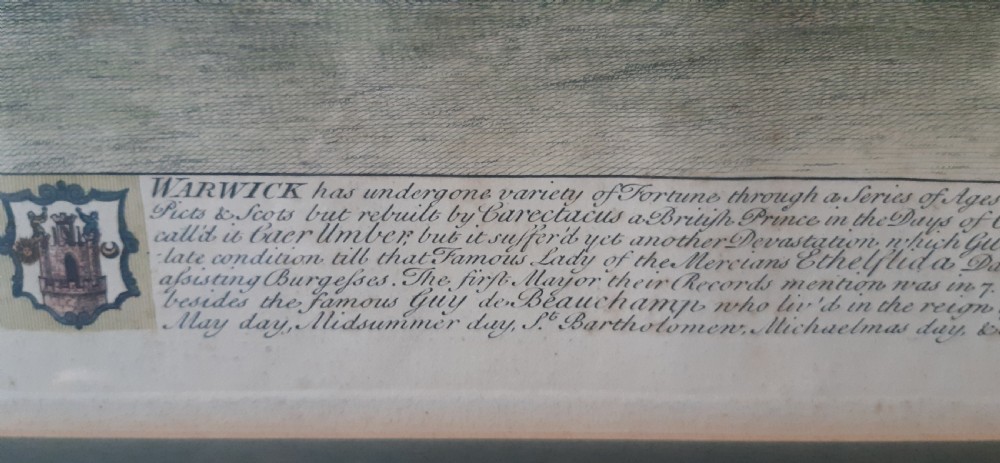 WARWICK has undergone variety of Fortune through a Series of Ages
Picts & Scots but rebuilt by Carectacus a British Prince in the Days of
call'd it Caer Umber, but it suffer'd yet another Devastation, which
-late condition till that Famous Lady of the Mercians Ethelflida
assisting Burgesses. The first Mayor their Records mention was in 7.
besides the famous Guy de Beauchamp who liv'd in the reign
May day, Midsummer day, St. Bartholomew, Michaelmas day, &